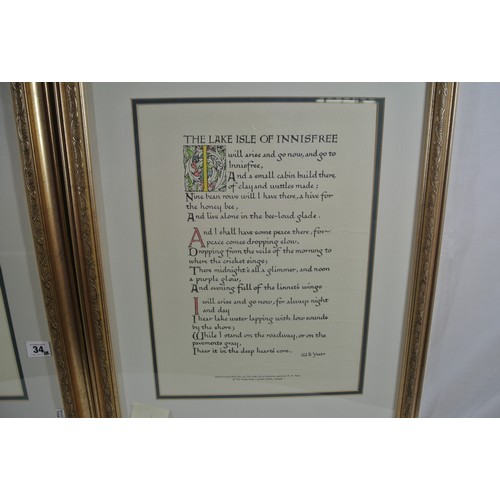 THE LAKE ISLE OF INNISFREE
I will arise and go now, and go to
Innisfree,
And a small cabin build there,
of clay and wattles made;
Nine bean rows will I have there, a hive for
the honey bee,
And live alone in the bee-loud glade.
And I shall have some peace there, for
peace comes dropping slow,
Dropping from the veils of the morning to
where the cricket sings;
There midnight's all a glimmer, and noon
a purple glow,
And evening full of the linnet's wings
I will arise and go now, for always night
and day
I hear lake water lapping with low sounds
by the shore;
While I stand on the roadway, or on the
pavements gray,
I hear it in the deep heart's core.
W B Yeats
34